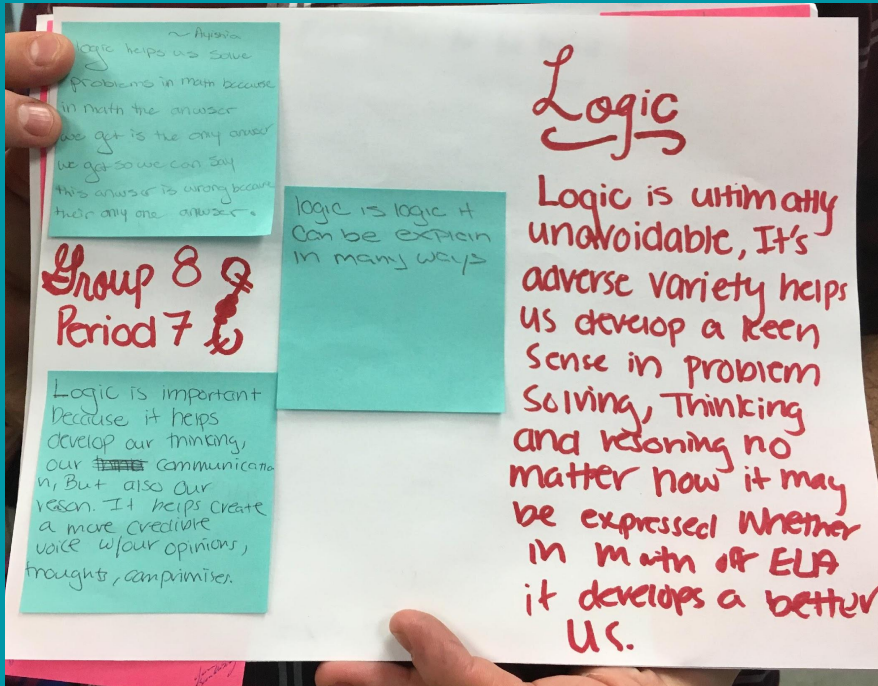 ~ Ayishia
logic helps us solve
problems in math because
in math the anwser
we get is the only anwser
we get so we can say
this anwser is wrong because
their only one anwser.
Group 8
Period 7
Logic is important
because it helps
develop our thinking,
our communicatio
n, But also our
reson. It helps create
a more credible
voice w/our opinions,
thoughts, comprimises.
logic is logic it
can be explein
in many ways
Logic
Logic is ultimatly
unavoidable, It's
adverse variety helps
us develop a keen
sense in problem
Solving, Thinking
and resoning no
matter how it may
be expressed whether
in math or ELA
it develops a better
us.